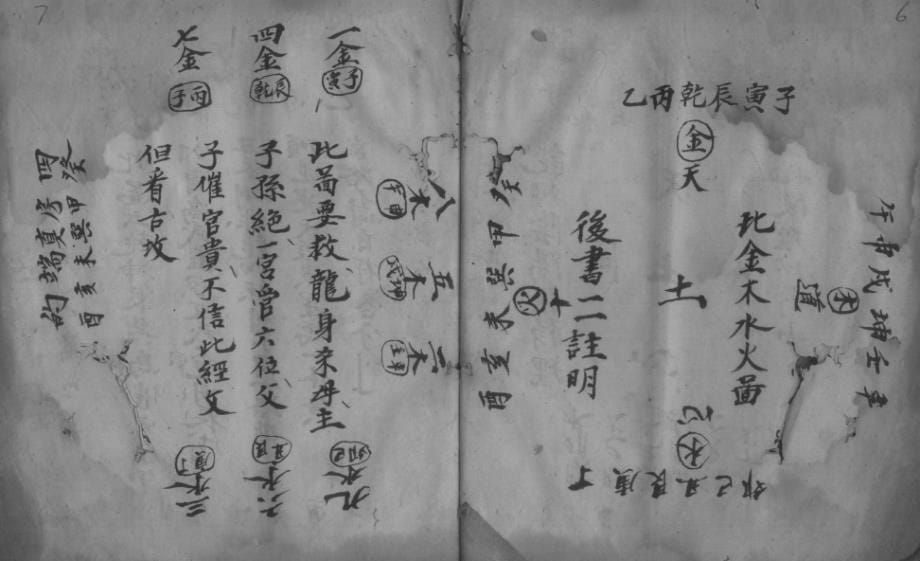 6
子寅辰乾丙乙
金
天
午申戌坤壬辛
木
道
此金木水火畐
土
後書二註明
水
卯巳丑艮庚丁
火
十
癸甲巽未亥酉
7
一金
子寅
四金
辰乾
七金
丙子
八木
午申
五木
戌坤
二木
此畐要救龍身来毋主
子孫絕一宮管六位父
子催官貴不信此經文
但看古坟
九水
卯巳
六水
丑艮
三水
庚丁
癸
四序甲巽未亥酉
真端的